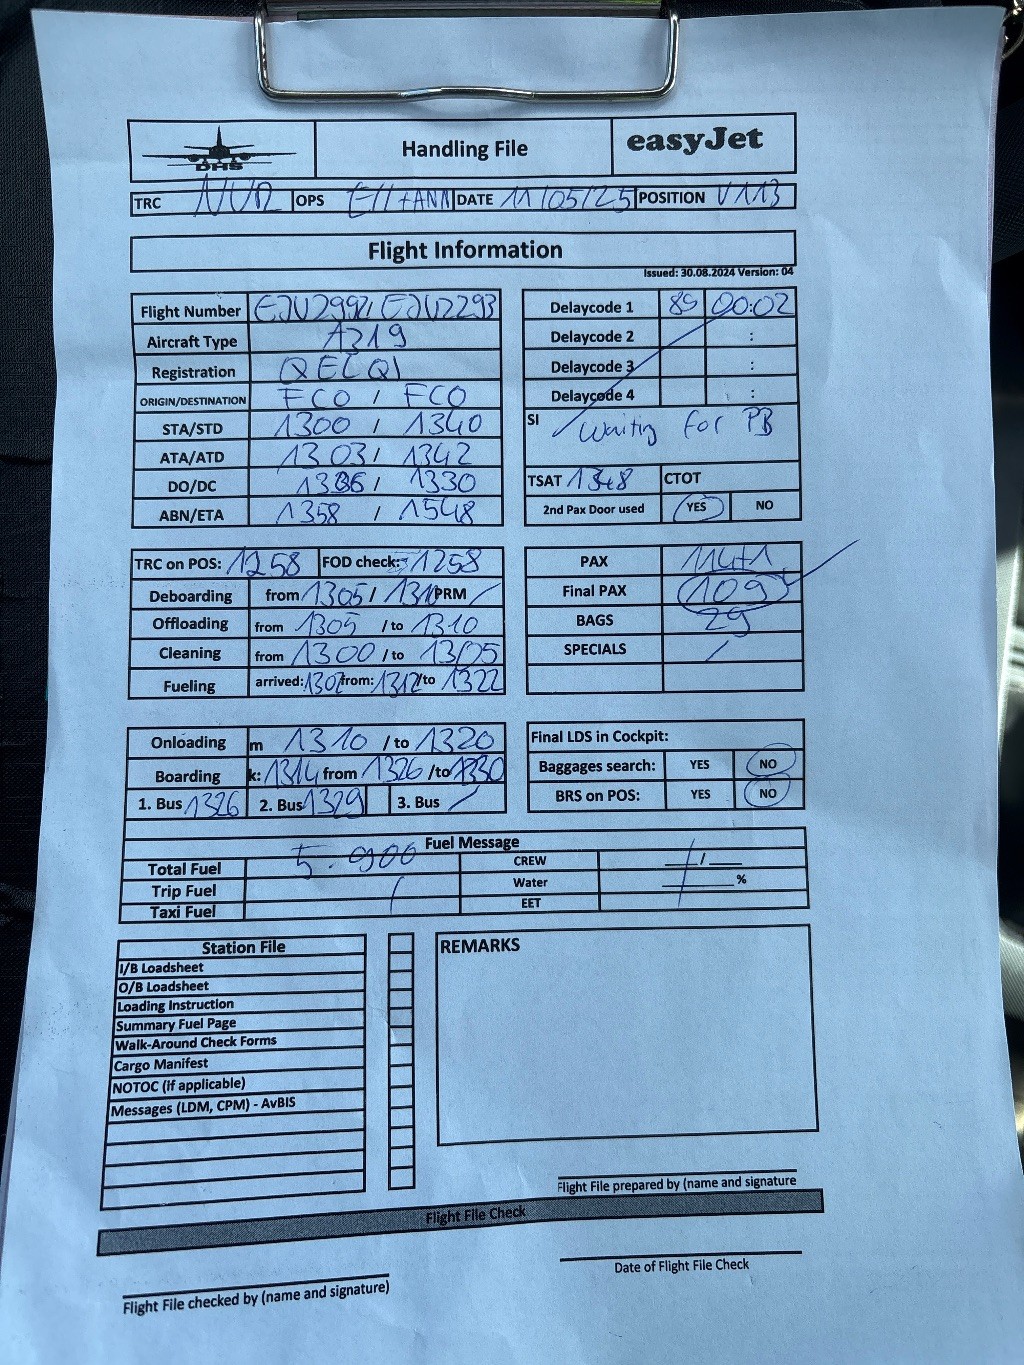 DHS Handling File easyJet
TRC NUR OPS DATE 11/05/25 POSITION V113
Flight Information
Issued: 30.08.2024 Version: 04
Flight Number EJU2992/ EJU2293
Aircraft Type A319
Registration
ORIGIN/DESTINATION FCO / FCO
STA/STD 1300 / 1340
ATA/ATD 1303 / 1342
DO/DC 1336 / 1330
ABN/ETA 1358 / 1548
Delaycode 1 89 00:02
Delaycode 2 :
Delaycode 3 :
Delaycode 4 :
SI Waiting for PB
TSAT 1348 CTOT
2nd Pax Door used YES NO
TRC on POS: 1258 FOD check: 1258
Deboarding from 1305 / 1310 PRM /
Offloading from 1305 /to 1310
Cleaning from 1300 /to 1305
Fueling arrived: 1302 from: 1312 /to 1322
PAX 114+1
Final PAX 109
BAGS 29
SPECIALS /
Onloading m 1310 /to 1320
Boarding k: 1314 from 1326 /to 1330
1. Bus 1326 2. Bus 1329 3. Bus /
Final LDS in Cockpit:
Baggages search: YES NO
BRS on POS: YES NO
Fuel Message
Total Fuel 5.900 CREW ___/___
Trip Fuel / Water ______%
Taxi Fuel EET
Station File
I/B Loadsheet
O/B Loadsheet
Loading Instruction
Summary Fuel Page
Walk-Around Check Forms
Cargo Manifest
NOTOC (if applicable)
Messages (LDM, CPM) - AvBIS
REMARKS
Flight File prepared by (name and signature
Flight File Check
Date of Flight File Check
Flight File checked by (name and signature)